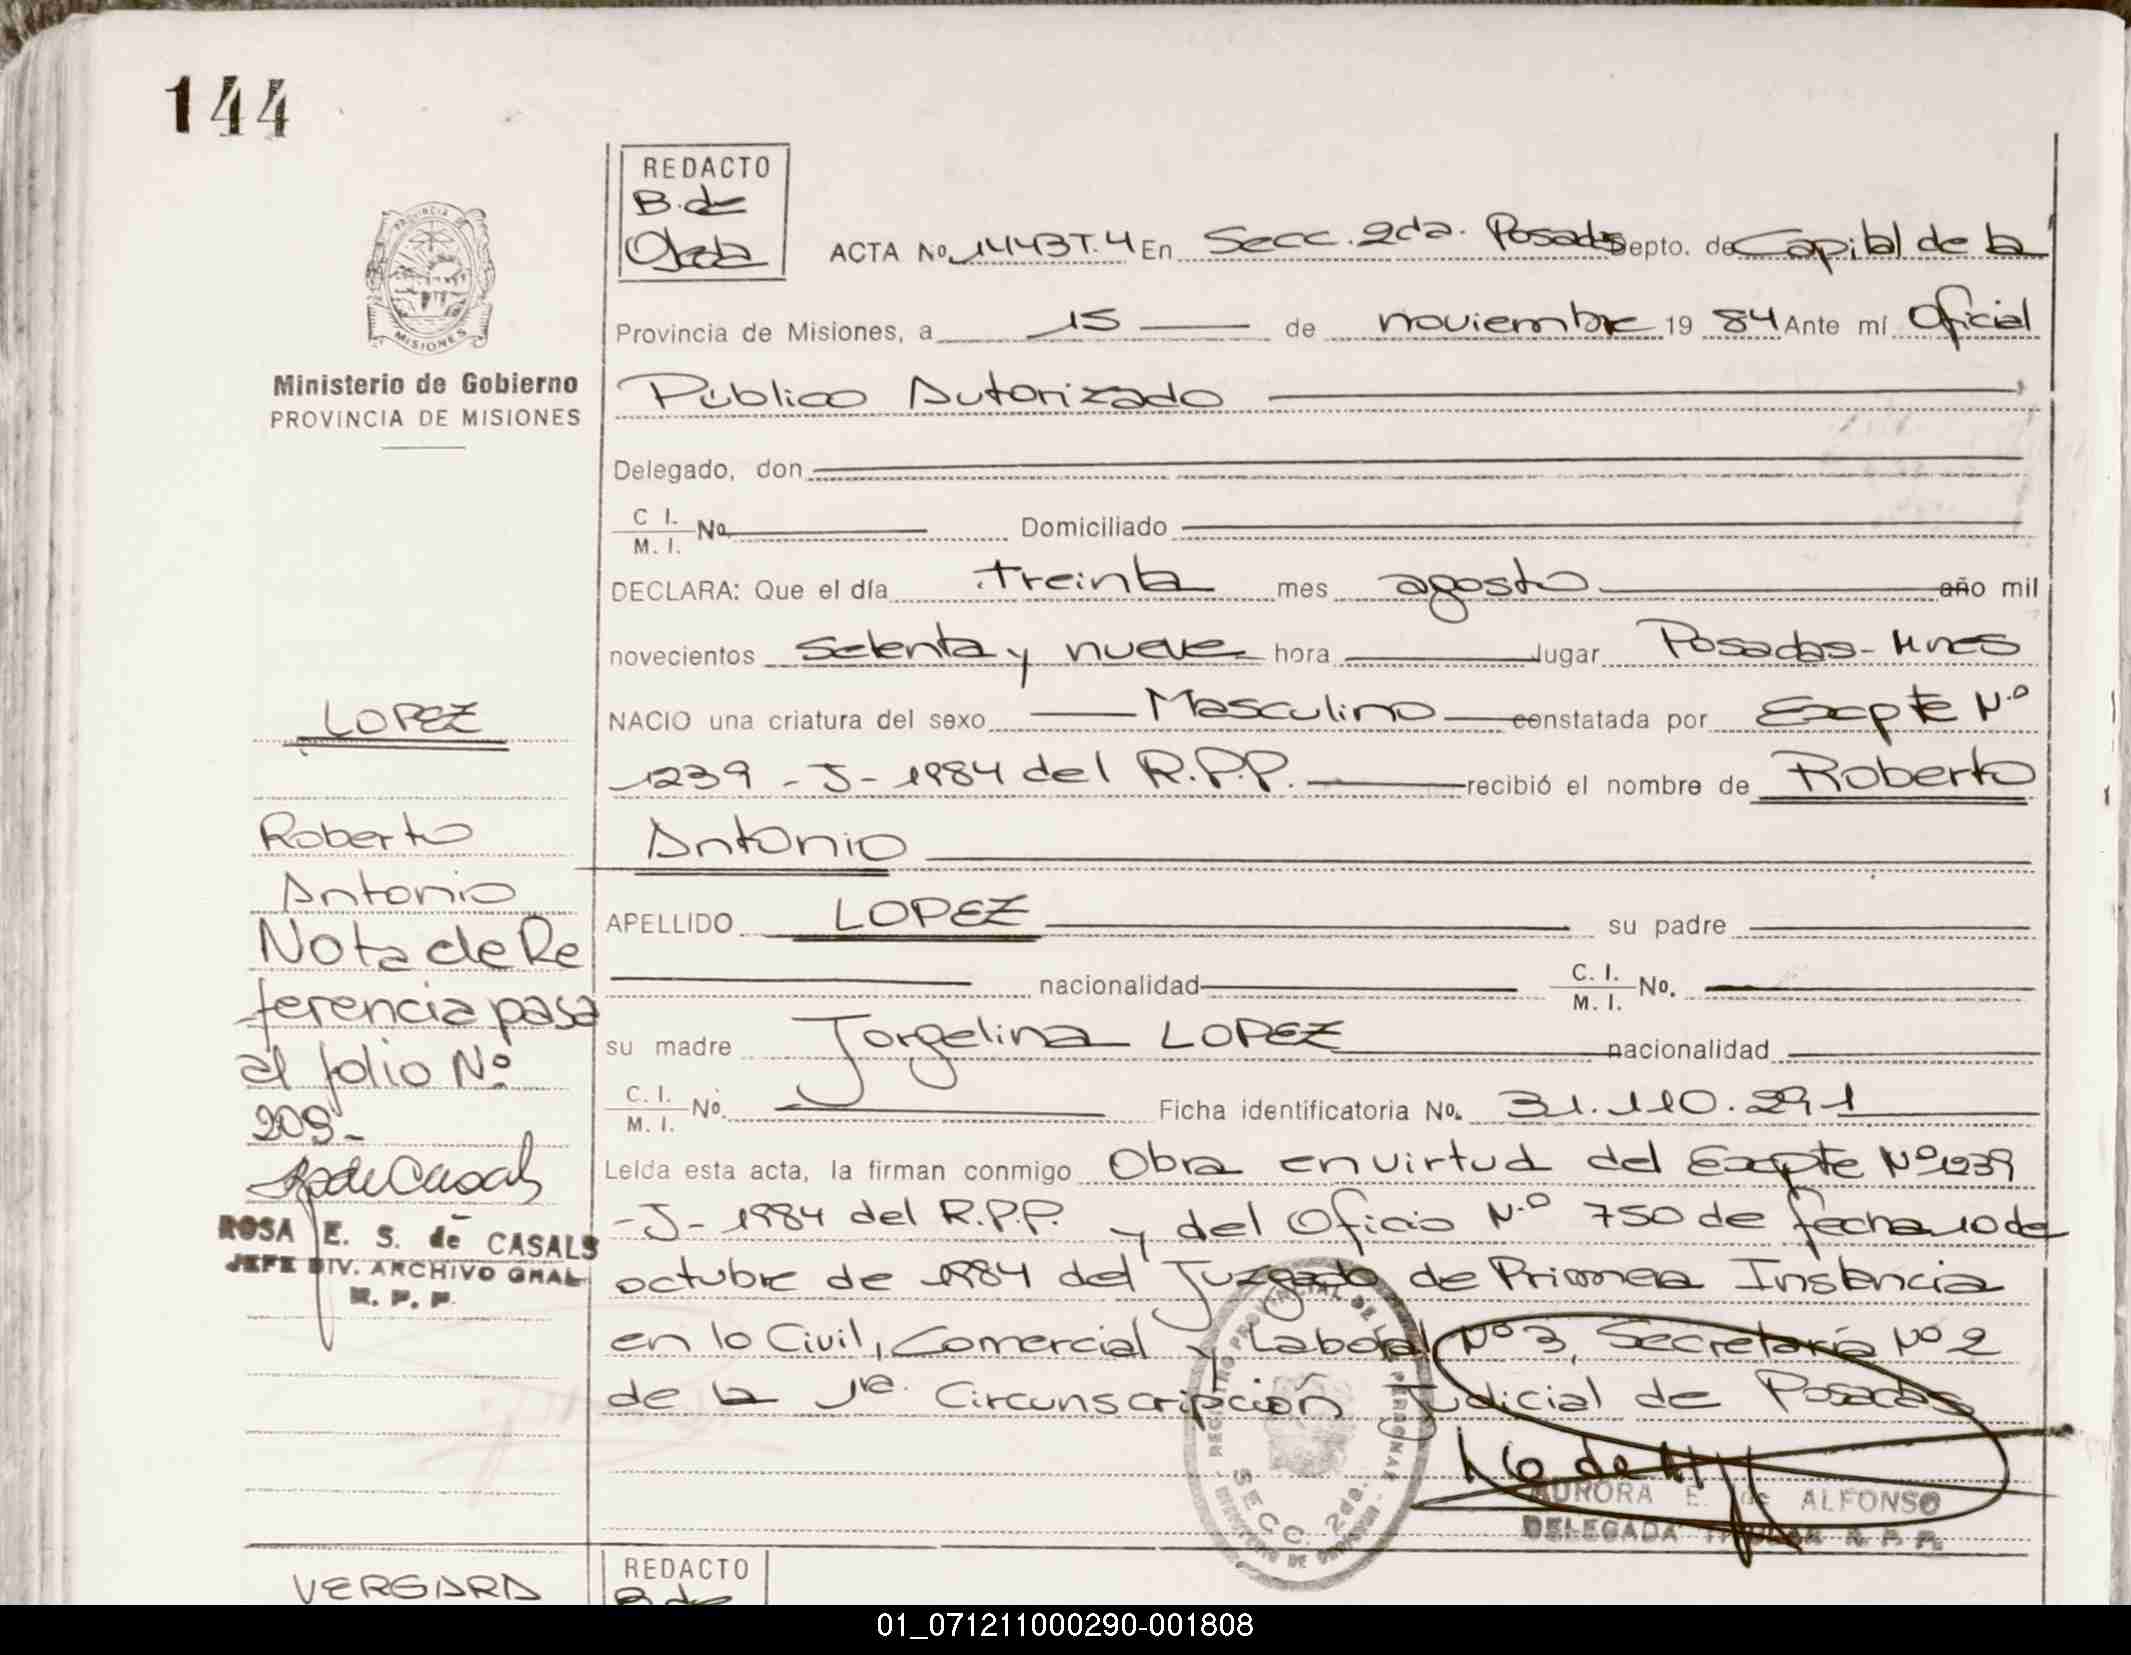 144
REDACTO
B. de
Ojeda
ACTA No. 1443 T. 4 En Secc. 2da. Posadas Depto. de Capital de la
Provincia de Misiones, a 15 de noviembre 19 84 Ante mí Oficial
Público Autorizado
Delegado, don
C I. M. I. No. Domiciliado
DECLARA: Que el día treinta mes agosto año mil
novecientos setenta y nueve hora lugar Posadas - Mnes
NACIO una criatura del sexo Masculino constatada por Expte N.º
1239 - J - 1984 del R.P.P. recibió el nombre de Roberto
Antonio
APELLIDO LOPEZ su padre
nacionalidad C. I. M. I. No.
su madre Jorgelina LOPEZ nacionalidad
C. I. M. I. No. Ficha identificatoria No. 31.110.291
Leída esta acta, la firman conmigo Obra en virtud del Expte Nº 1239
- J - 1984 del R.P.P. y del Oficio N.º 750 de fecha 10 de
octubre de 1984 del Juzgado de Primera Instancia
en lo Civil, Comercial y Laboral Nº 3, Secretaría Nº 2
de la 1ra. Circunscripción Judicial de Posadas
AURORA E. de ALFONSO
DELEGADA TITULAR R. P. P.
SECC. 2da.
PROVINCIA DE
MISIONES
Ministerio de Gobierno
PROVINCIA DE MISIONES
LOPEZ
Roberto
Antonio
Nota de Re
ferencia pasa
al folio Nº
209 -
R de Casals
ROSA E. S. de CASALS
JEFE DIV. ARCHIVO GRAL
R. P. P.
VERGARA
REDACTO
B. de
01_071211000290-001808